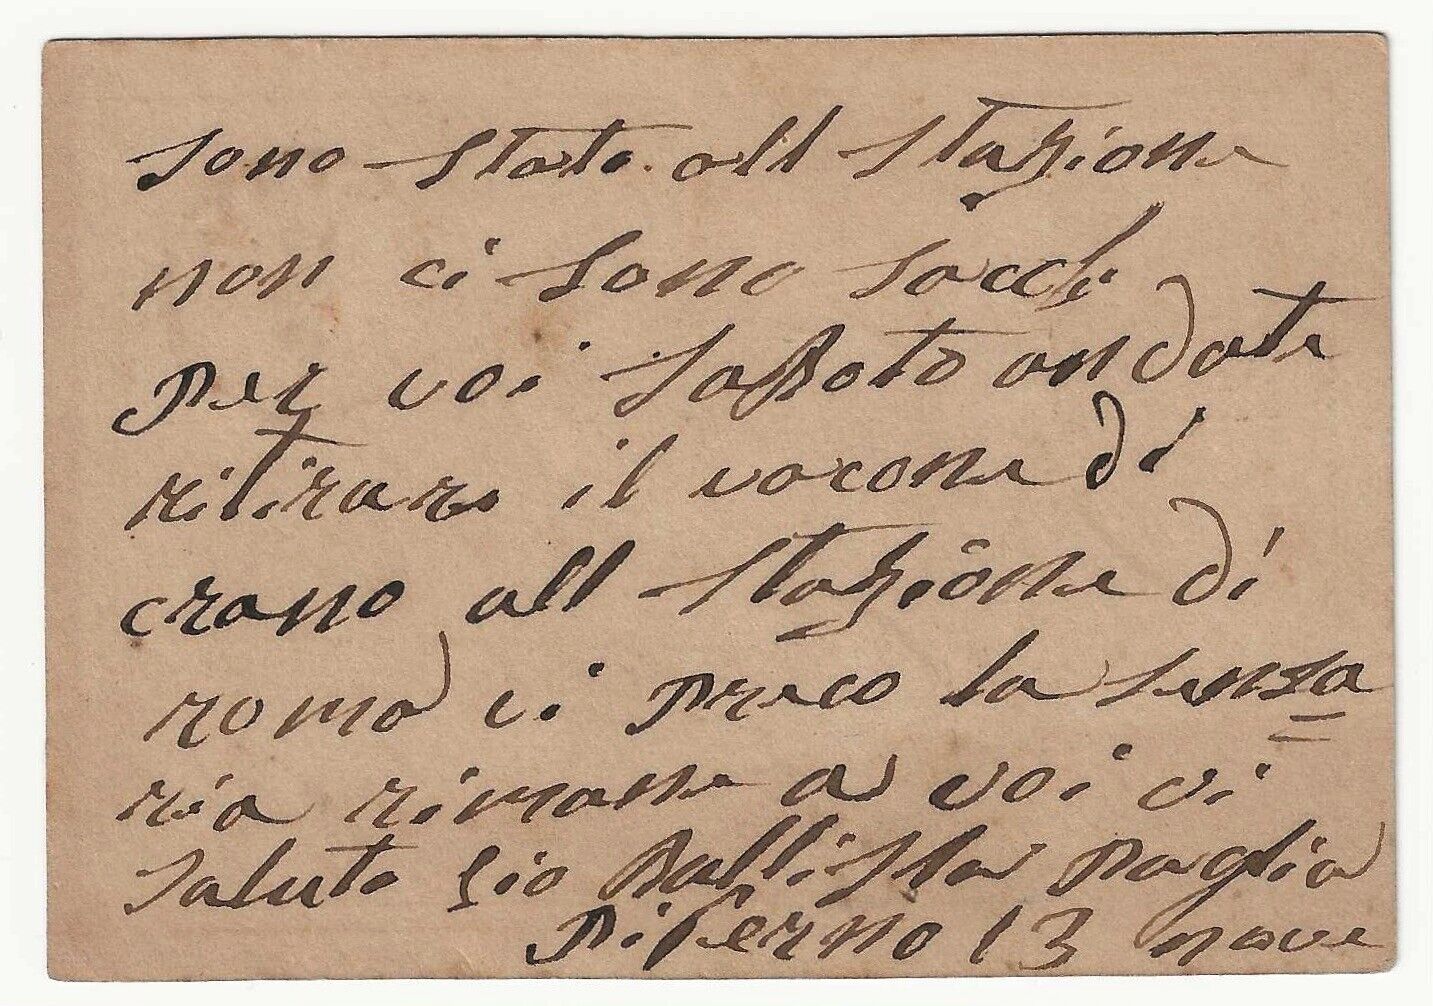 sono stato all stazione
non ci sono sacchi
per voi saboto andate
ritirare il vacone di
crano all stazione di
roma vi preco la sensa
ria rimane a voi vi
saluto Gio Battista Paglia
Piperno 13 nove